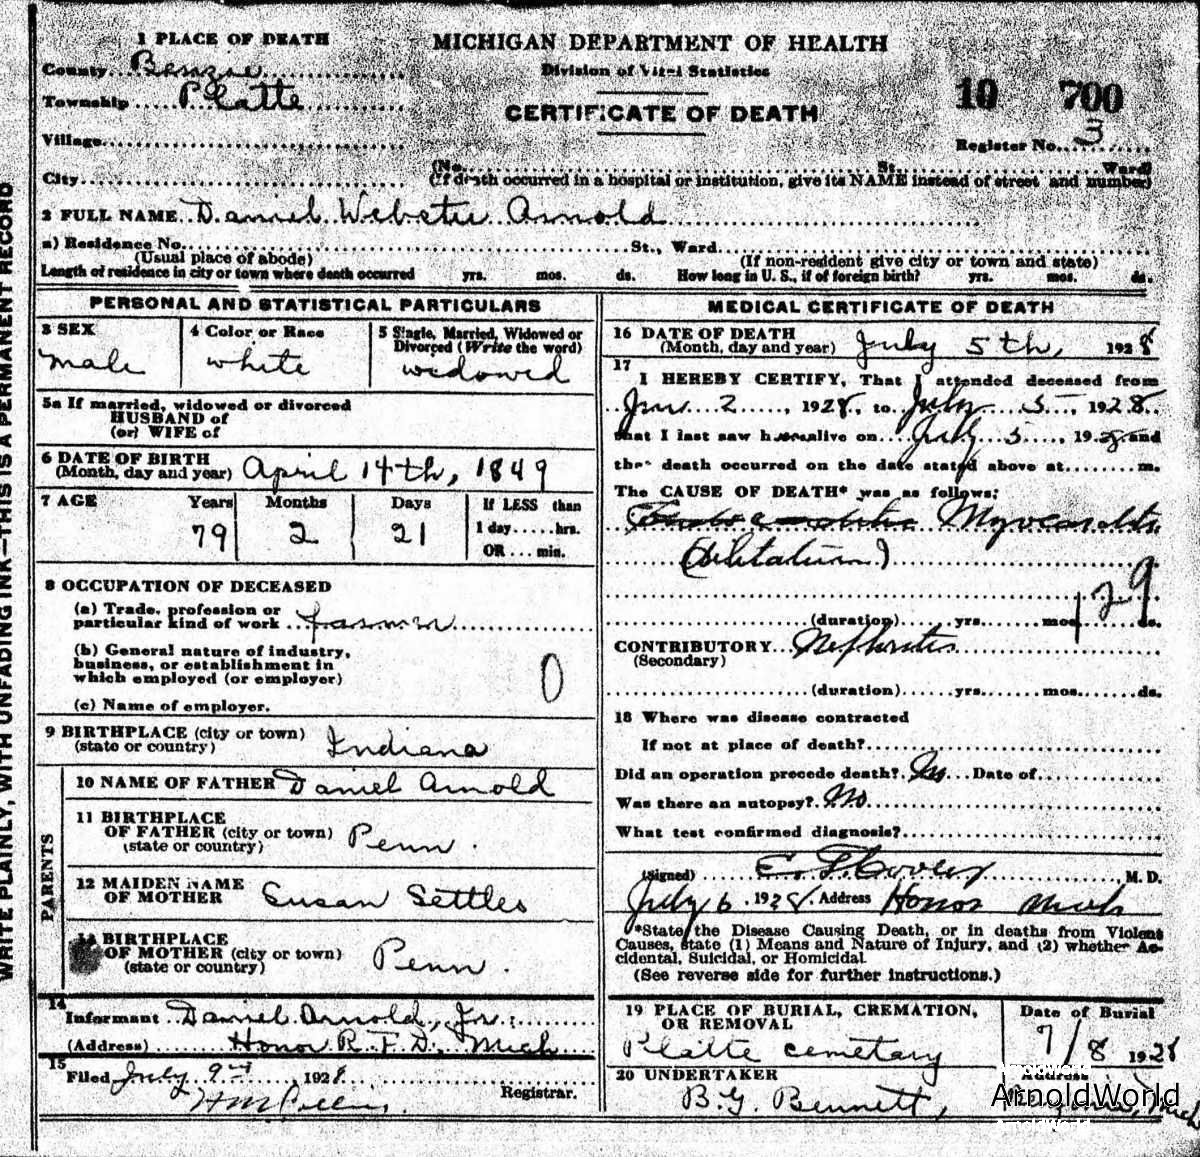 WRITE PLAINLY, WITH UNFADING INK—THIS IS A PERMANENT RECORD
MICHIGAN DEPARTMENT OF HEALTH
Division of Vital Statistics
CERTIFICATE OF DEATH
10 700
Register No. 3
1 PLACE OF DEATH
County Benzie
Township Platte
Village
City
(No. St. Ward)
(If death occurred in a hospital or institution, give its NAME instead of street and number)
2 FULL NAME Daniel Webster Arnold
a) Residence No. St., Ward
(Usual place of abode) (If non-resident give city or town and state)
Length of residence in city or town where death occurred yrs. mos. ds. How long in U. S., if of foreign birth? yrs. mos. ds.
PERSONAL AND STATISTICAL PARTICULARS
3 SEX
male
4 Color or Race
white
5 Single, Married, Widowed or
Divorced (Write the word)
widowed
5a If married, widowed or divorced
HUSBAND of
(or) WIFE of
6 DATE OF BIRTH
(Month, day and year) April 14th, 1849
7 AGE Years Months Days If LESS than
79 2 21 1 day......hrs.
OR ... min.
8 OCCUPATION OF DECEASED
(a) Trade, profession or
particular kind of work farmer
(b) General nature of industry,
business, or establishment in
which employed (or employer) 0
(c) Name of employer.
9 BIRTHPLACE (city or town)
(state or country) Indiana
PARENTS
10 NAME OF FATHER Daniel Arnold
11 BIRTHPLACE
OF FATHER (city or town)
(state or country) Penn.
12 MAIDEN NAME
OF MOTHER Susan Settles
13 BIRTHPLACE
OF MOTHER (city or town)
(state or country) Penn.
14
Informant Daniel Arnold, Jr.
(Address) Honor R.F.D. Mich
15
Filed July 9 1928
Registrar.
MEDICAL CERTIFICATE OF DEATH
16 DATE OF DEATH
(Month, day and year) July 5th, 1928
17
I HEREBY CERTIFY, That I attended deceased from
2, 1928, to July 5, 1928
that I last saw h alive on July 5, 19 and
that death occurred on the date stated above at m.
The CAUSE OF DEATH* was as follows:
(dilitation)
129
(duration) yrs. mos. ds.
CONTRIBUTORY Nephritis
(Secondary)
(duration) yrs. mos. ds.
18 Where was disease contracted
If not at place of death?
Did an operation precede death? No Date of
Was there an autopsy? No
What test confirmed diagnosis?
(Signed) M. D.
July 6, 1928. Address Honor Mich
*State the Disease Causing Death, or in deaths from Violent
Causes, state (1) Means and Nature of Injury, and (2) whether Ac-
cidental, Suicidal, or Homicidal
(See reverse side for further instructions.)
19 PLACE OF BURIAL, CREMATION,
OR REMOVAL
Platte cemetary
Date of Burial
7/8 1928
20 UNDERTAKER
B.G. Bennett,
Address
Mich
ArnoldWorld